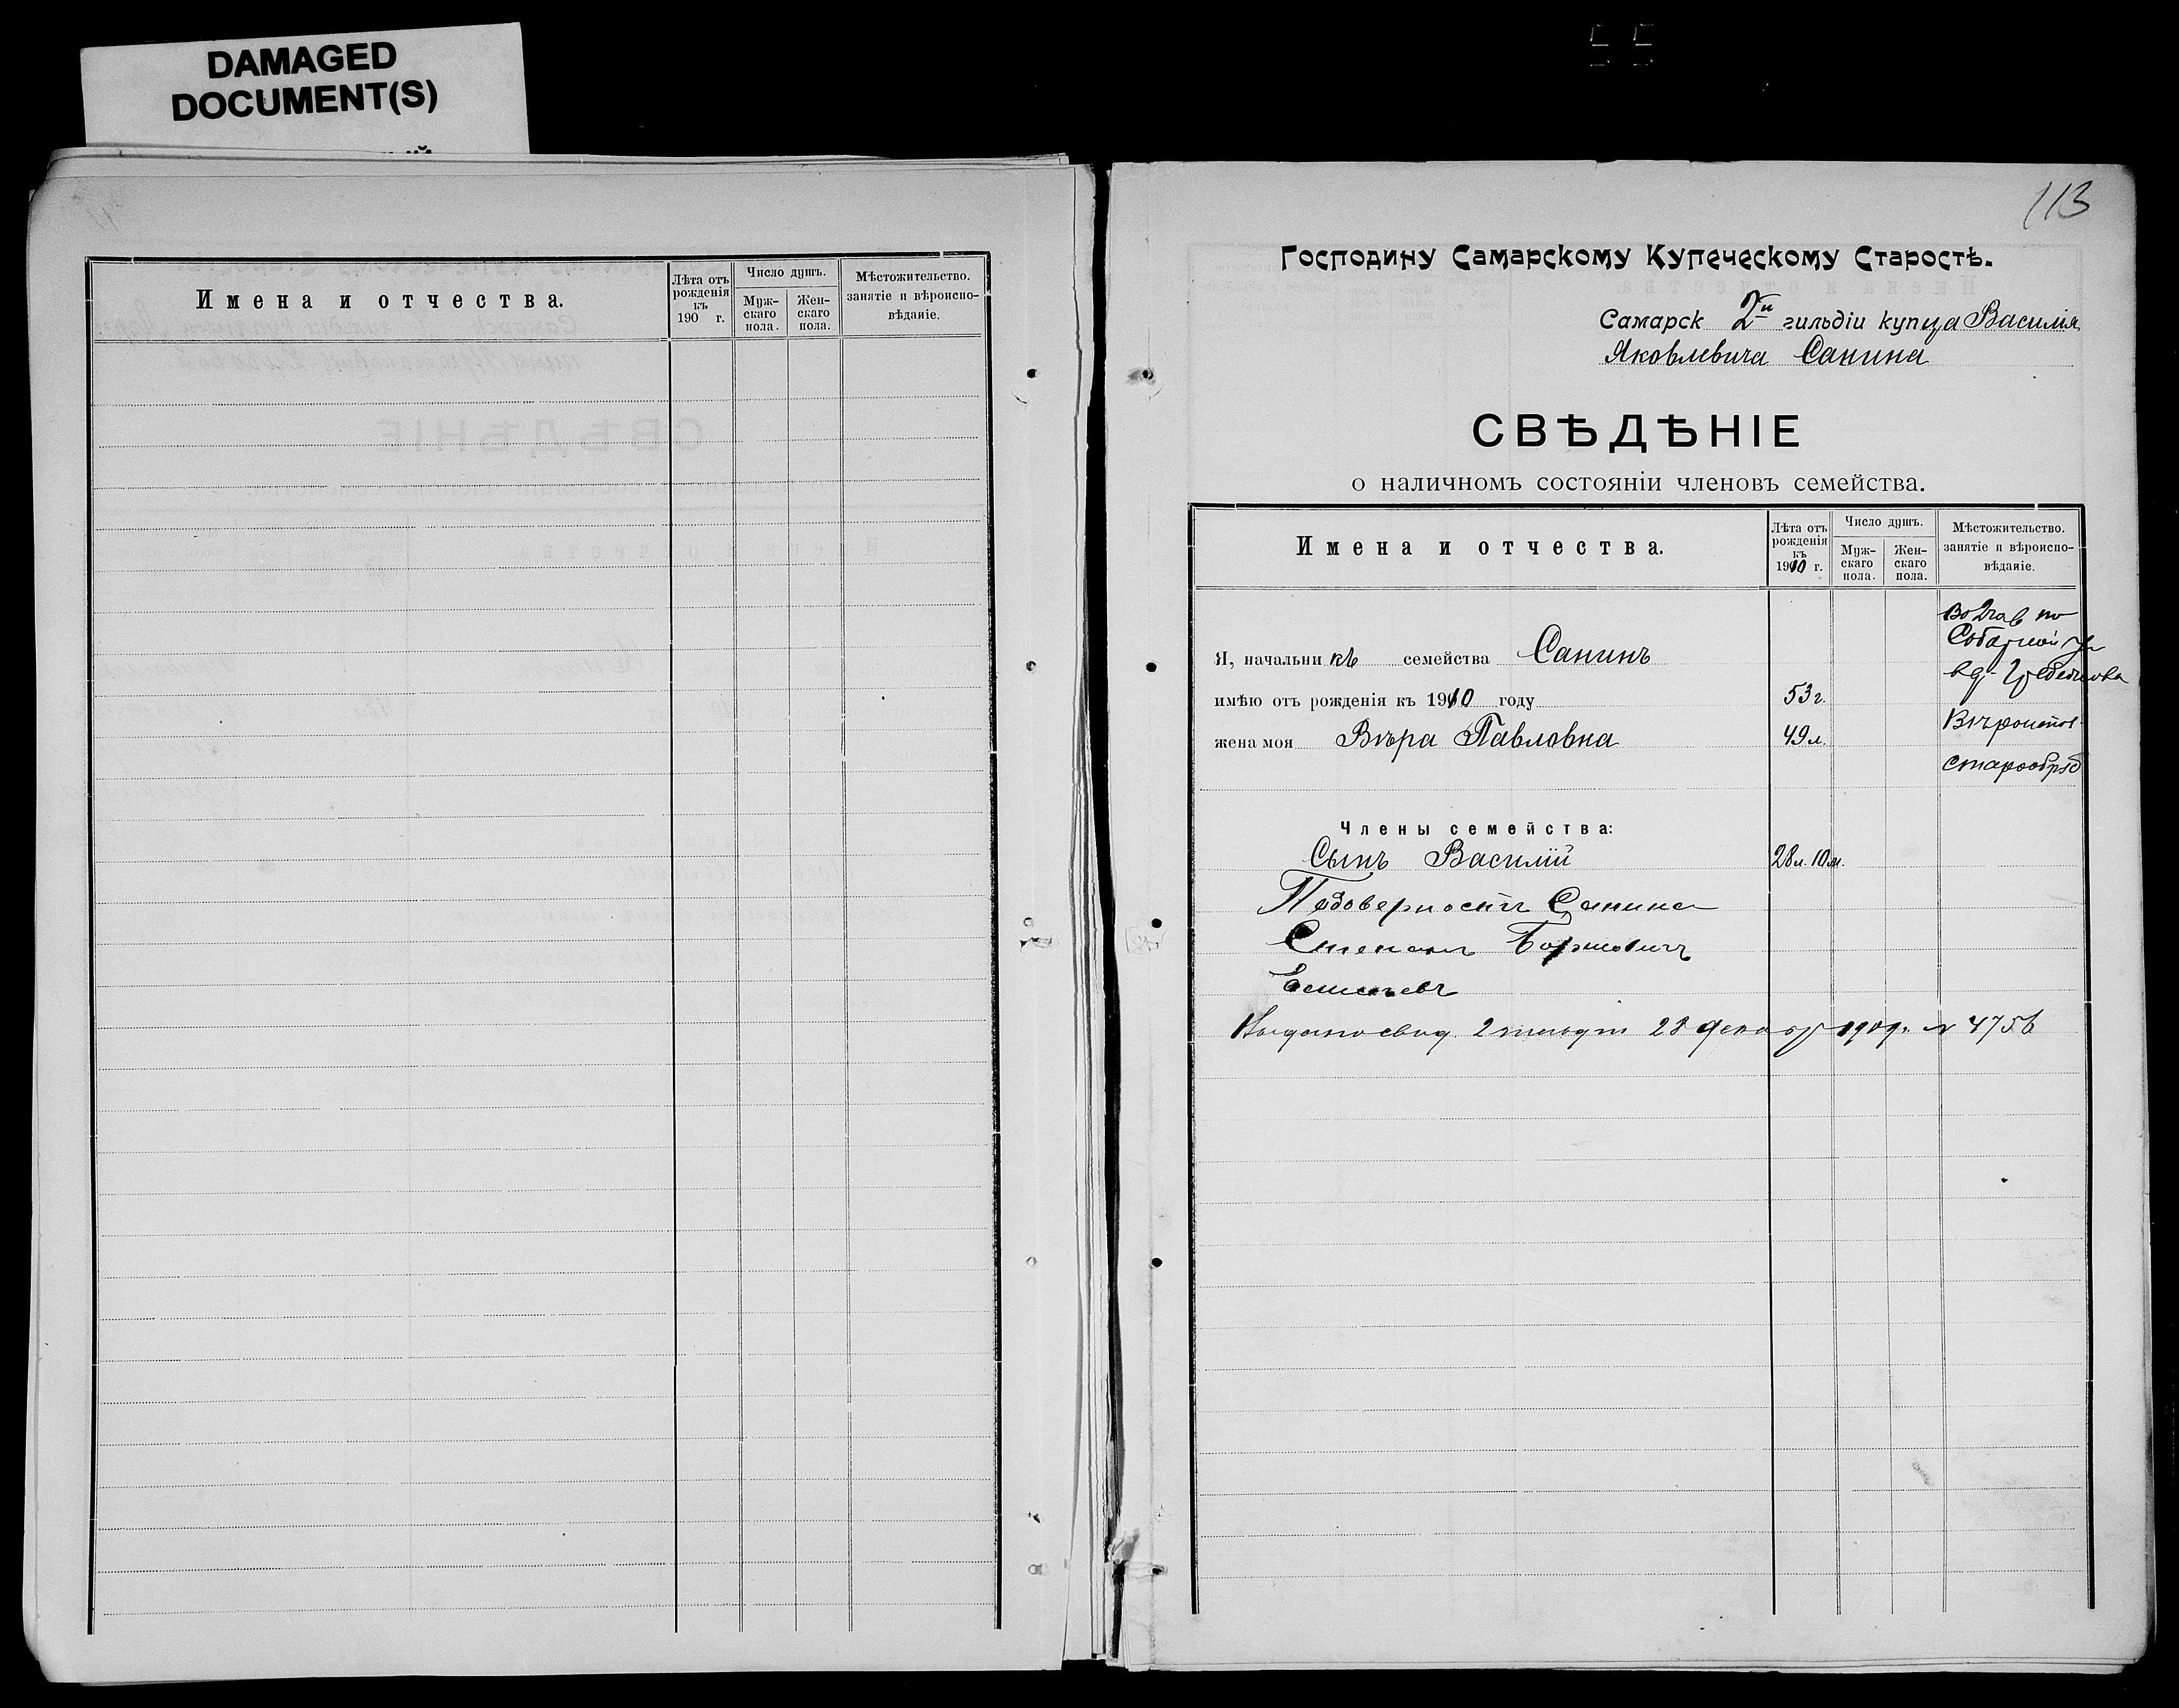 DAMAGED
DOCUMENT(S)
Имена и отчества.
Лѣта отъ рожденія къ 190 г.
Число душъ.
Муж-скаго пола.
Жен-скаго пола.
Мѣстожительство. занятіе и вѣроиспо-вѣданіе.
113
Господину Самарскому Купеческому Старостѣ.
Самарск 2й гильдіи купца Василія
Яковлевича Санина
СВѢДѢНІЕ
о наличномъ состояніи членовъ семейства.
Имена и отчества.
Лѣта отъ рожденія къ 1910 г.
Число душъ.
Муж-скаго пола.
Жен-скаго пола.
Мѣстожительство. занятіе и вѣроиспо-вѣданіе.
во 2 час по
Соборной ул
Я, начальникъ семейства Санинъ
имѣю отъ рожденія къ 1910 году 53 г.
жена моя Вѣра Павловна 49 л.
Вѣроиспов
старообряд
Члены семейства:
Сынъ Василій 28 л. 10 м.
По доверности Санина
Степанъ
Выдано свид. 2 гильдіи 28 декабр 1909 г. №